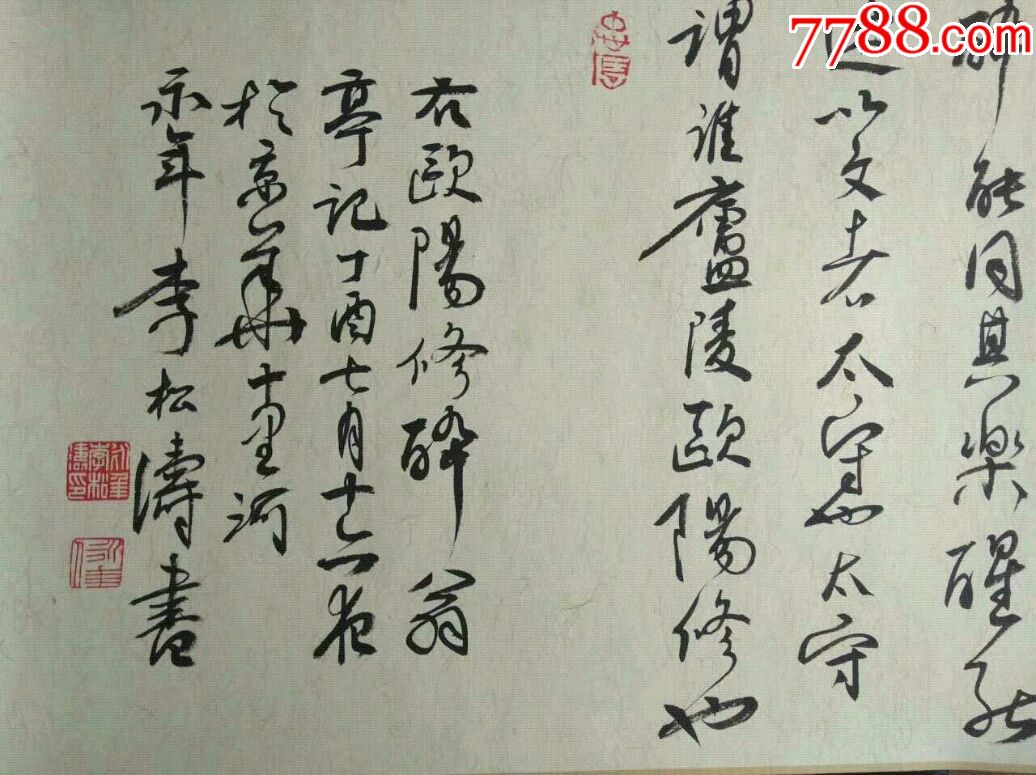 7788.com
醉能同其樂醒能
述以文者太守也太守
謂誰廬陵歐陽修也
右歐陽修醉翁
亭記丁酉七月十六夜
於京華十里河
永年李松濤書
永年李松濤印